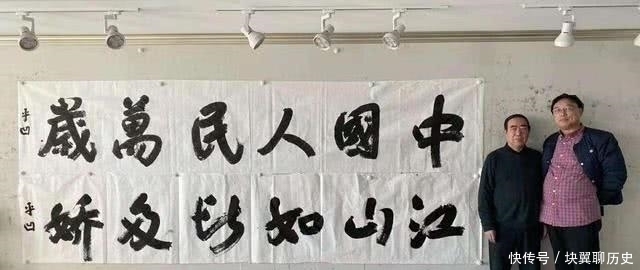 中國人民萬歲
平凹
江山如此多嬌
平凹
快传号 / 块翼聊历史